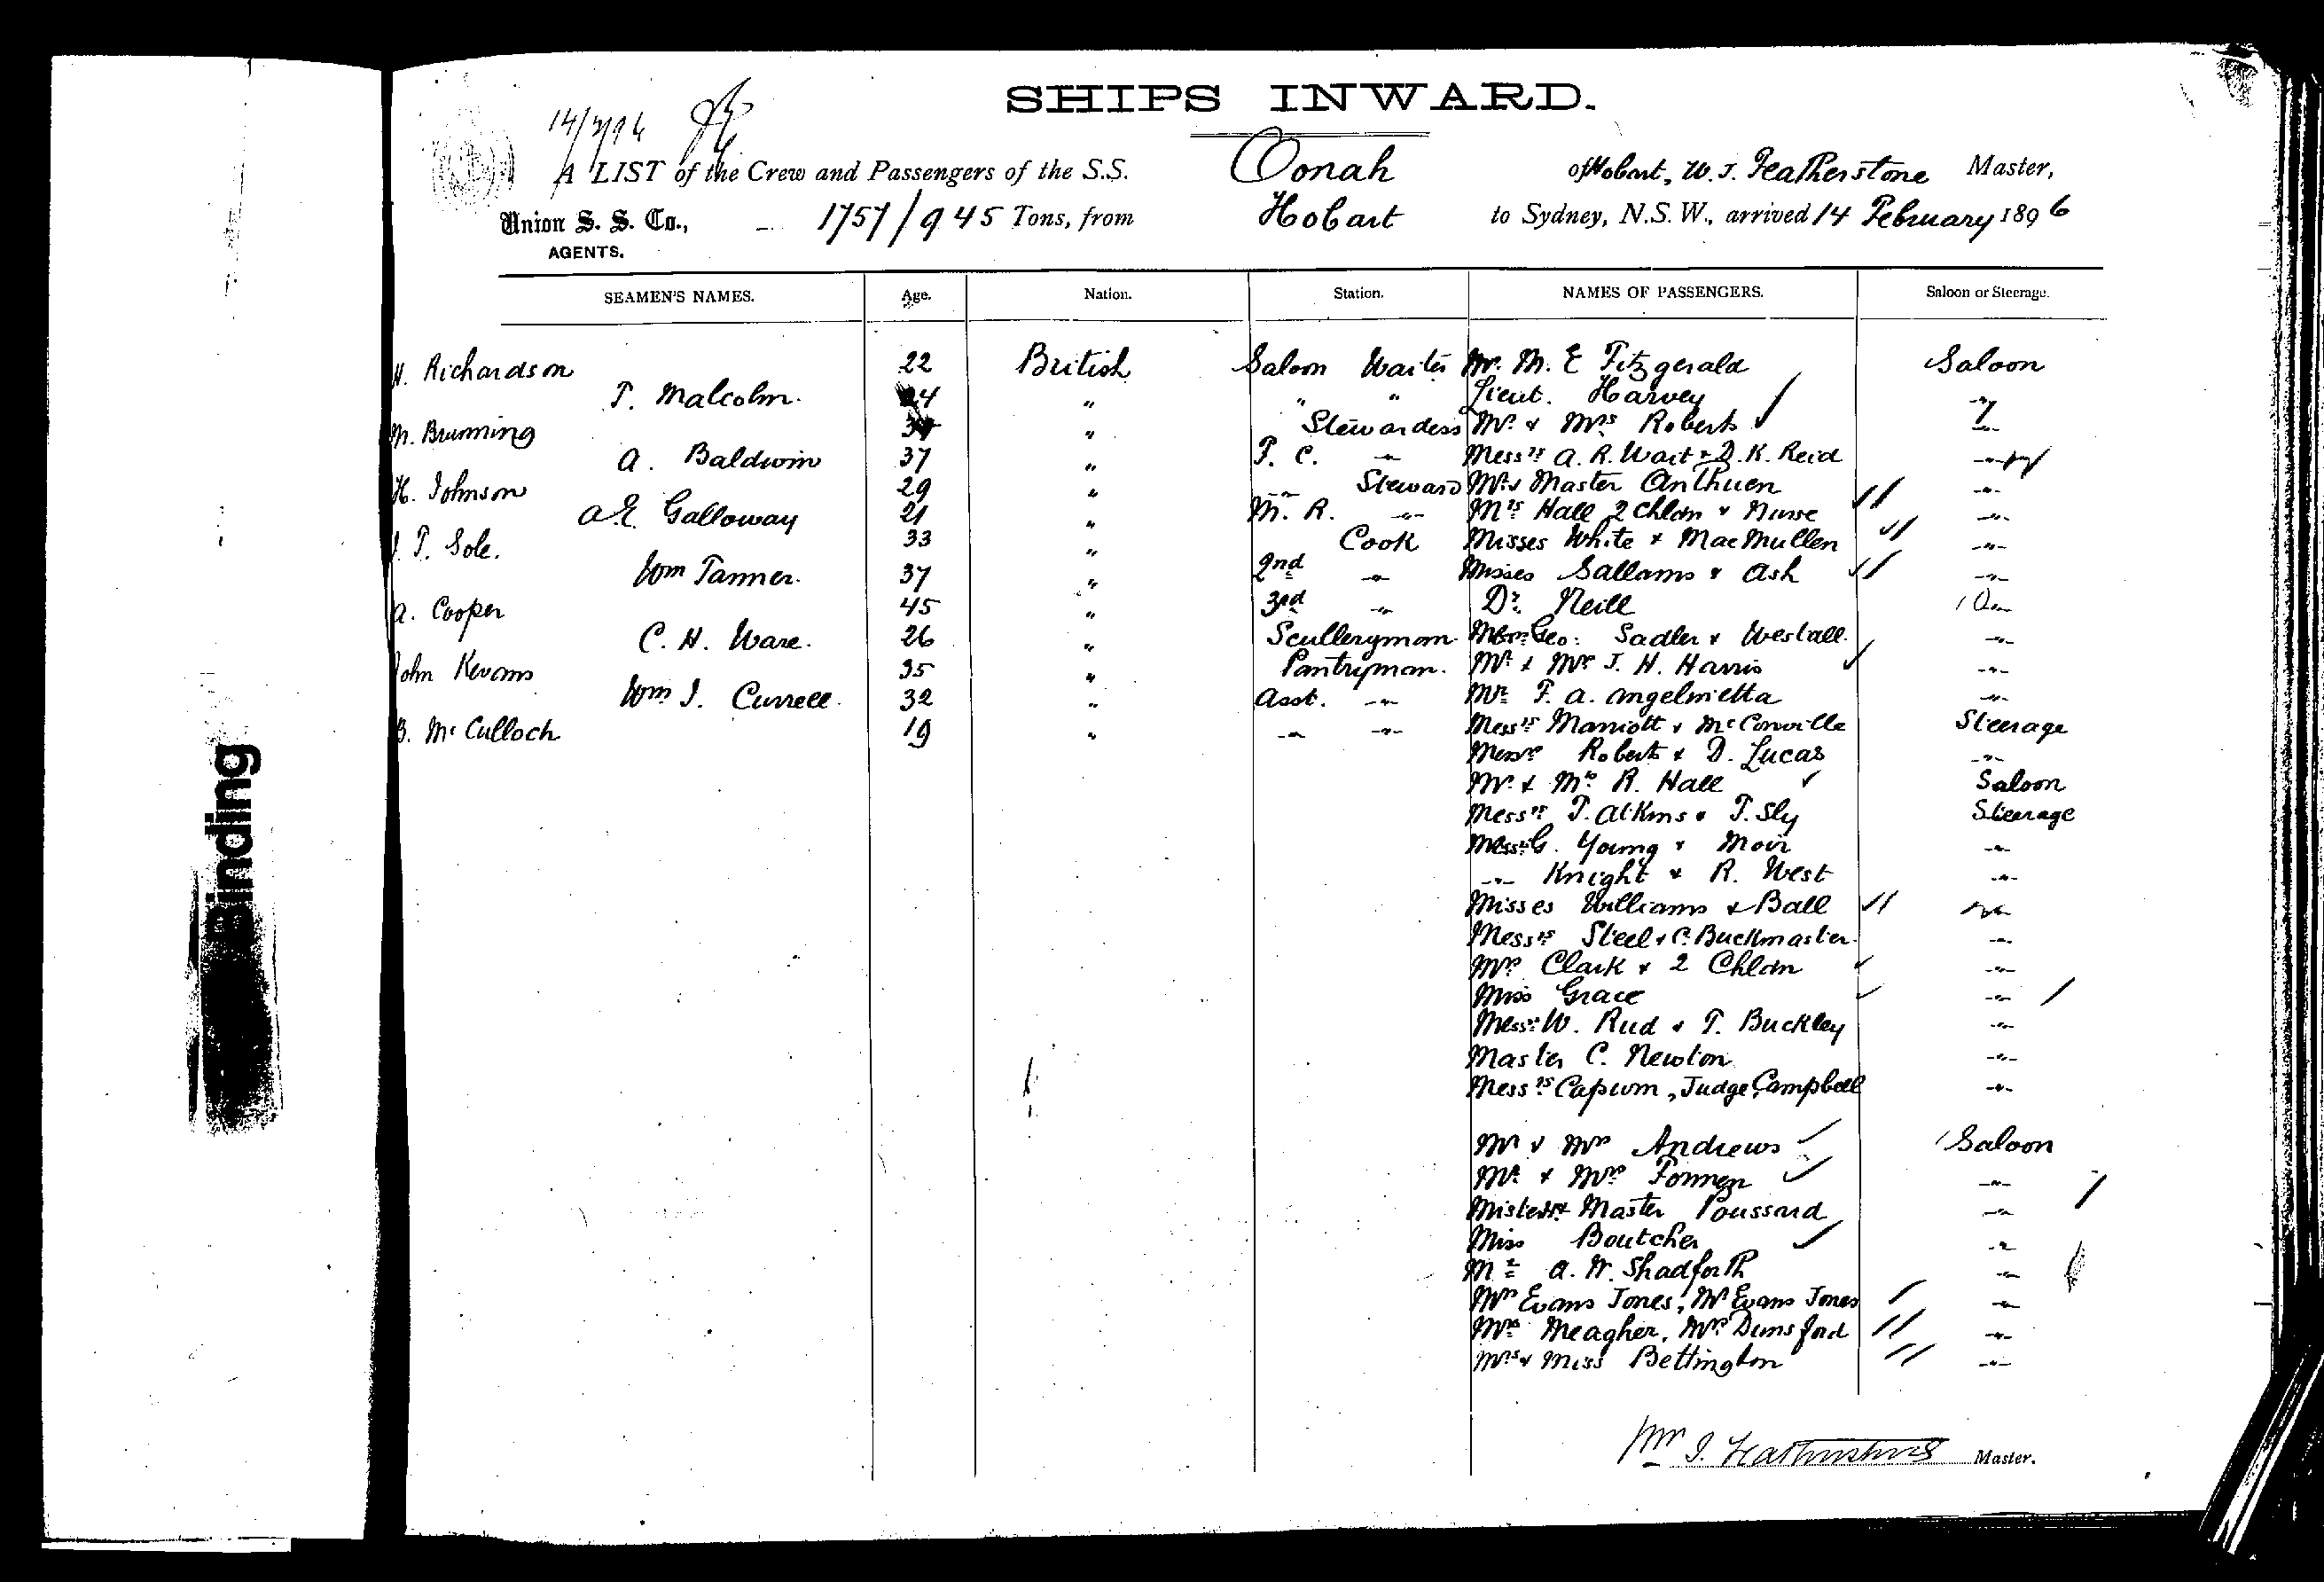 SHIPS INWARD.
14/2/96
A LIST of the Crew and Passengers of the S.S. Oonah of Hobart, W. J. Featherstone Master,
Union S. S. Co., 1757/945 Tons, from Hobart to Sydney, N.S.W., arrived 14 February 1896
AGENTS.
SEAMEN'S NAMES. Age. Nation. Station. NAMES OF PASSENGERS. Saloon or Steerage.
H. Richardson 22 British Saloon Waiter Mr. M. E Fitzgerald Saloon
T. Malcolm. 24 " " " Lieut. Harvey -"-
M. Brunning " Stewardess Mr. & Mrs Roberts -"-
A. Baldwin 37 " F. C. -"- Messrs A. R. Wait & D. K. Reid -"-
H. Johnson 29 " -"- Steward Mr & Master Anthuen -"-
A E Galloway 21 " M. R. -"- Mrs Hall 2 Chldn & Nurse -"-
J. T. Sole. 33 " Cook Misses White & MacMullen -"-
Wm Tanner. 37 " 2nd -"- Misses Sallams & Ash -"-
A. Cooper 45 " 3rd -"- Dr. Neill
C. H. Ware. 26 " Sculleryman. Geo: Sadler & Westall. -"-
John Kevans 35 " Pantryman. Mr & Mrs J. H. Harris -"-
Wm J. Currell. 32 " Asst. -"- Mr. F. A. Angelmietta -"-
B. McCulloch 19 " -"- -"- Messrs Marriott & McConville Steerage
Messrs Roberts & D. Lucas -"-
Mr. & Mrs R. Hall Saloon
Messrs T. Atkins & T. Sly Steerage
Messrs G. Young & Moir -"-
-"- Knight & R. West -"-
Misses Williams & Ball
Messrs Steel & C. Buckmaster. -"-
Mrs Clark & 2 Chldn -"-
Miss Grace -"-
Messrs W. Rud & T. Buckley -"-
Master C. Newton -"-
Messrs Capurn, Judge, Campbell -"-
Mr & Mrs Andrews Saloon
Mr. & Mrs Fonmen -"-
Master Poussard -"-
Miss Boutcher -"-
Mr A. W. Shadforth -"-
Mrs Evans Jones, Mr Evans Jones -"-
Mrs Meagher, Mrs Dunsford -"-
Mrs & Miss Bettington -"-
Wm J. Featherstone Master.
Binding